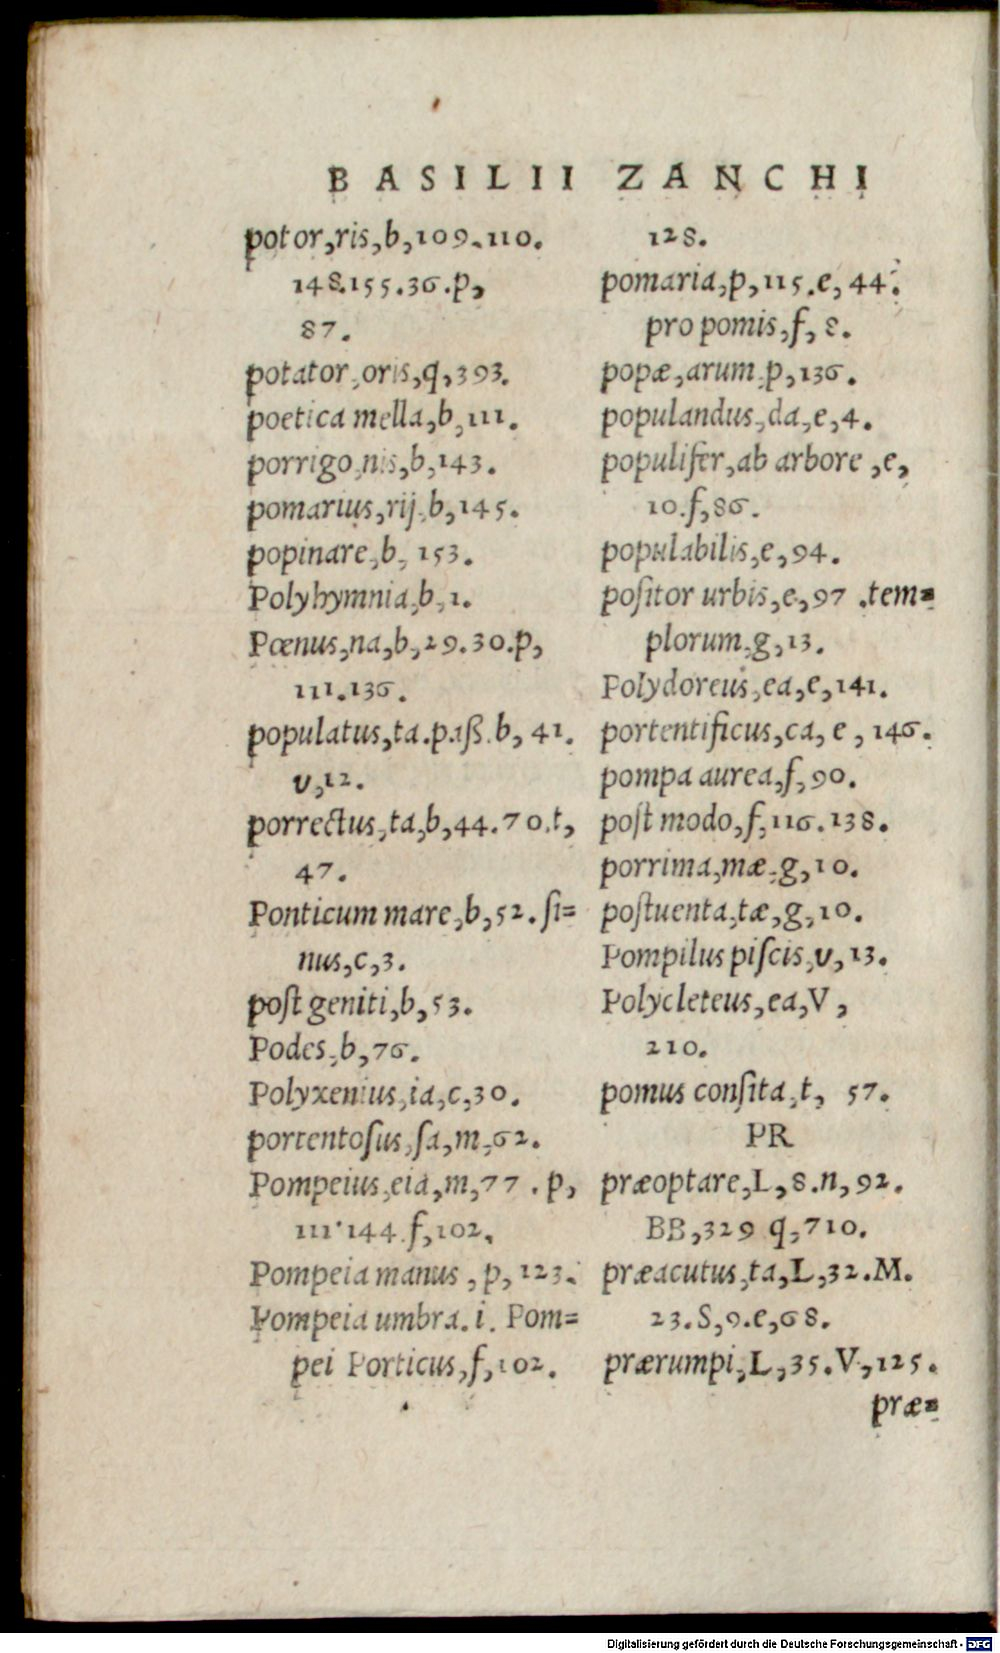 BASILII ZANCHI
potor,ris,b,109.110.
148.155.36.p,
87.
potator,oris,q,393.
poetica mella,b,111.
porrigo,nis,b,143.
pomarius,rij,b,145.
popinare,b,153.
Polyhymnia,b,1.
Pœnus,na,b,29.30.p,
111.136.
populatus,ta.paß.b,41.
v,12.
porrectus,ta,b,44.70.t,
47.
Ponticum mare,b,52.ſi=
nus,c,3.
poſt geniti,b,53.
Podes,b,76.
Polyxenius,ia,c,30.
portentoſus,ſa,m,62.
Pompeius,eia,m,77.p,
111.144.f,102.
Pompeia manus,p,123.
Pompeia umbra.i.Pom=
pei Porticus,f,102.
128.
pomaria,p,115.e,44.
pro pomis,f,8.
popæ,arum,p,136.
populandus,da,e,4.
populifer,ab arbore,e,
10.f,86.
populabilis,e,94.
poſitor urbis,e,97.tem=
plorum,g,13.
Polydoreus,ea,e,141.
portentificus,ca,e,146.
pompa aurea,f,90.
poſt modo,f,116.138.
porrima,mæ,g,10.
poſtuenta,tæ,g,10.
Pompilus piſcis,v,13.
Polycleteus,ea,V,
210.
pomus conſita,t,57.
PR
præoptare,L,8.n,92.
BB,329 q,710.
præacutus,ta,L,32.M.
23.S,9.e,68.
prærumpi,L,35.V,125.
præ=
Digitalisierung gefördert durch die Deutsche Forschungsgemeinschaft - DFG